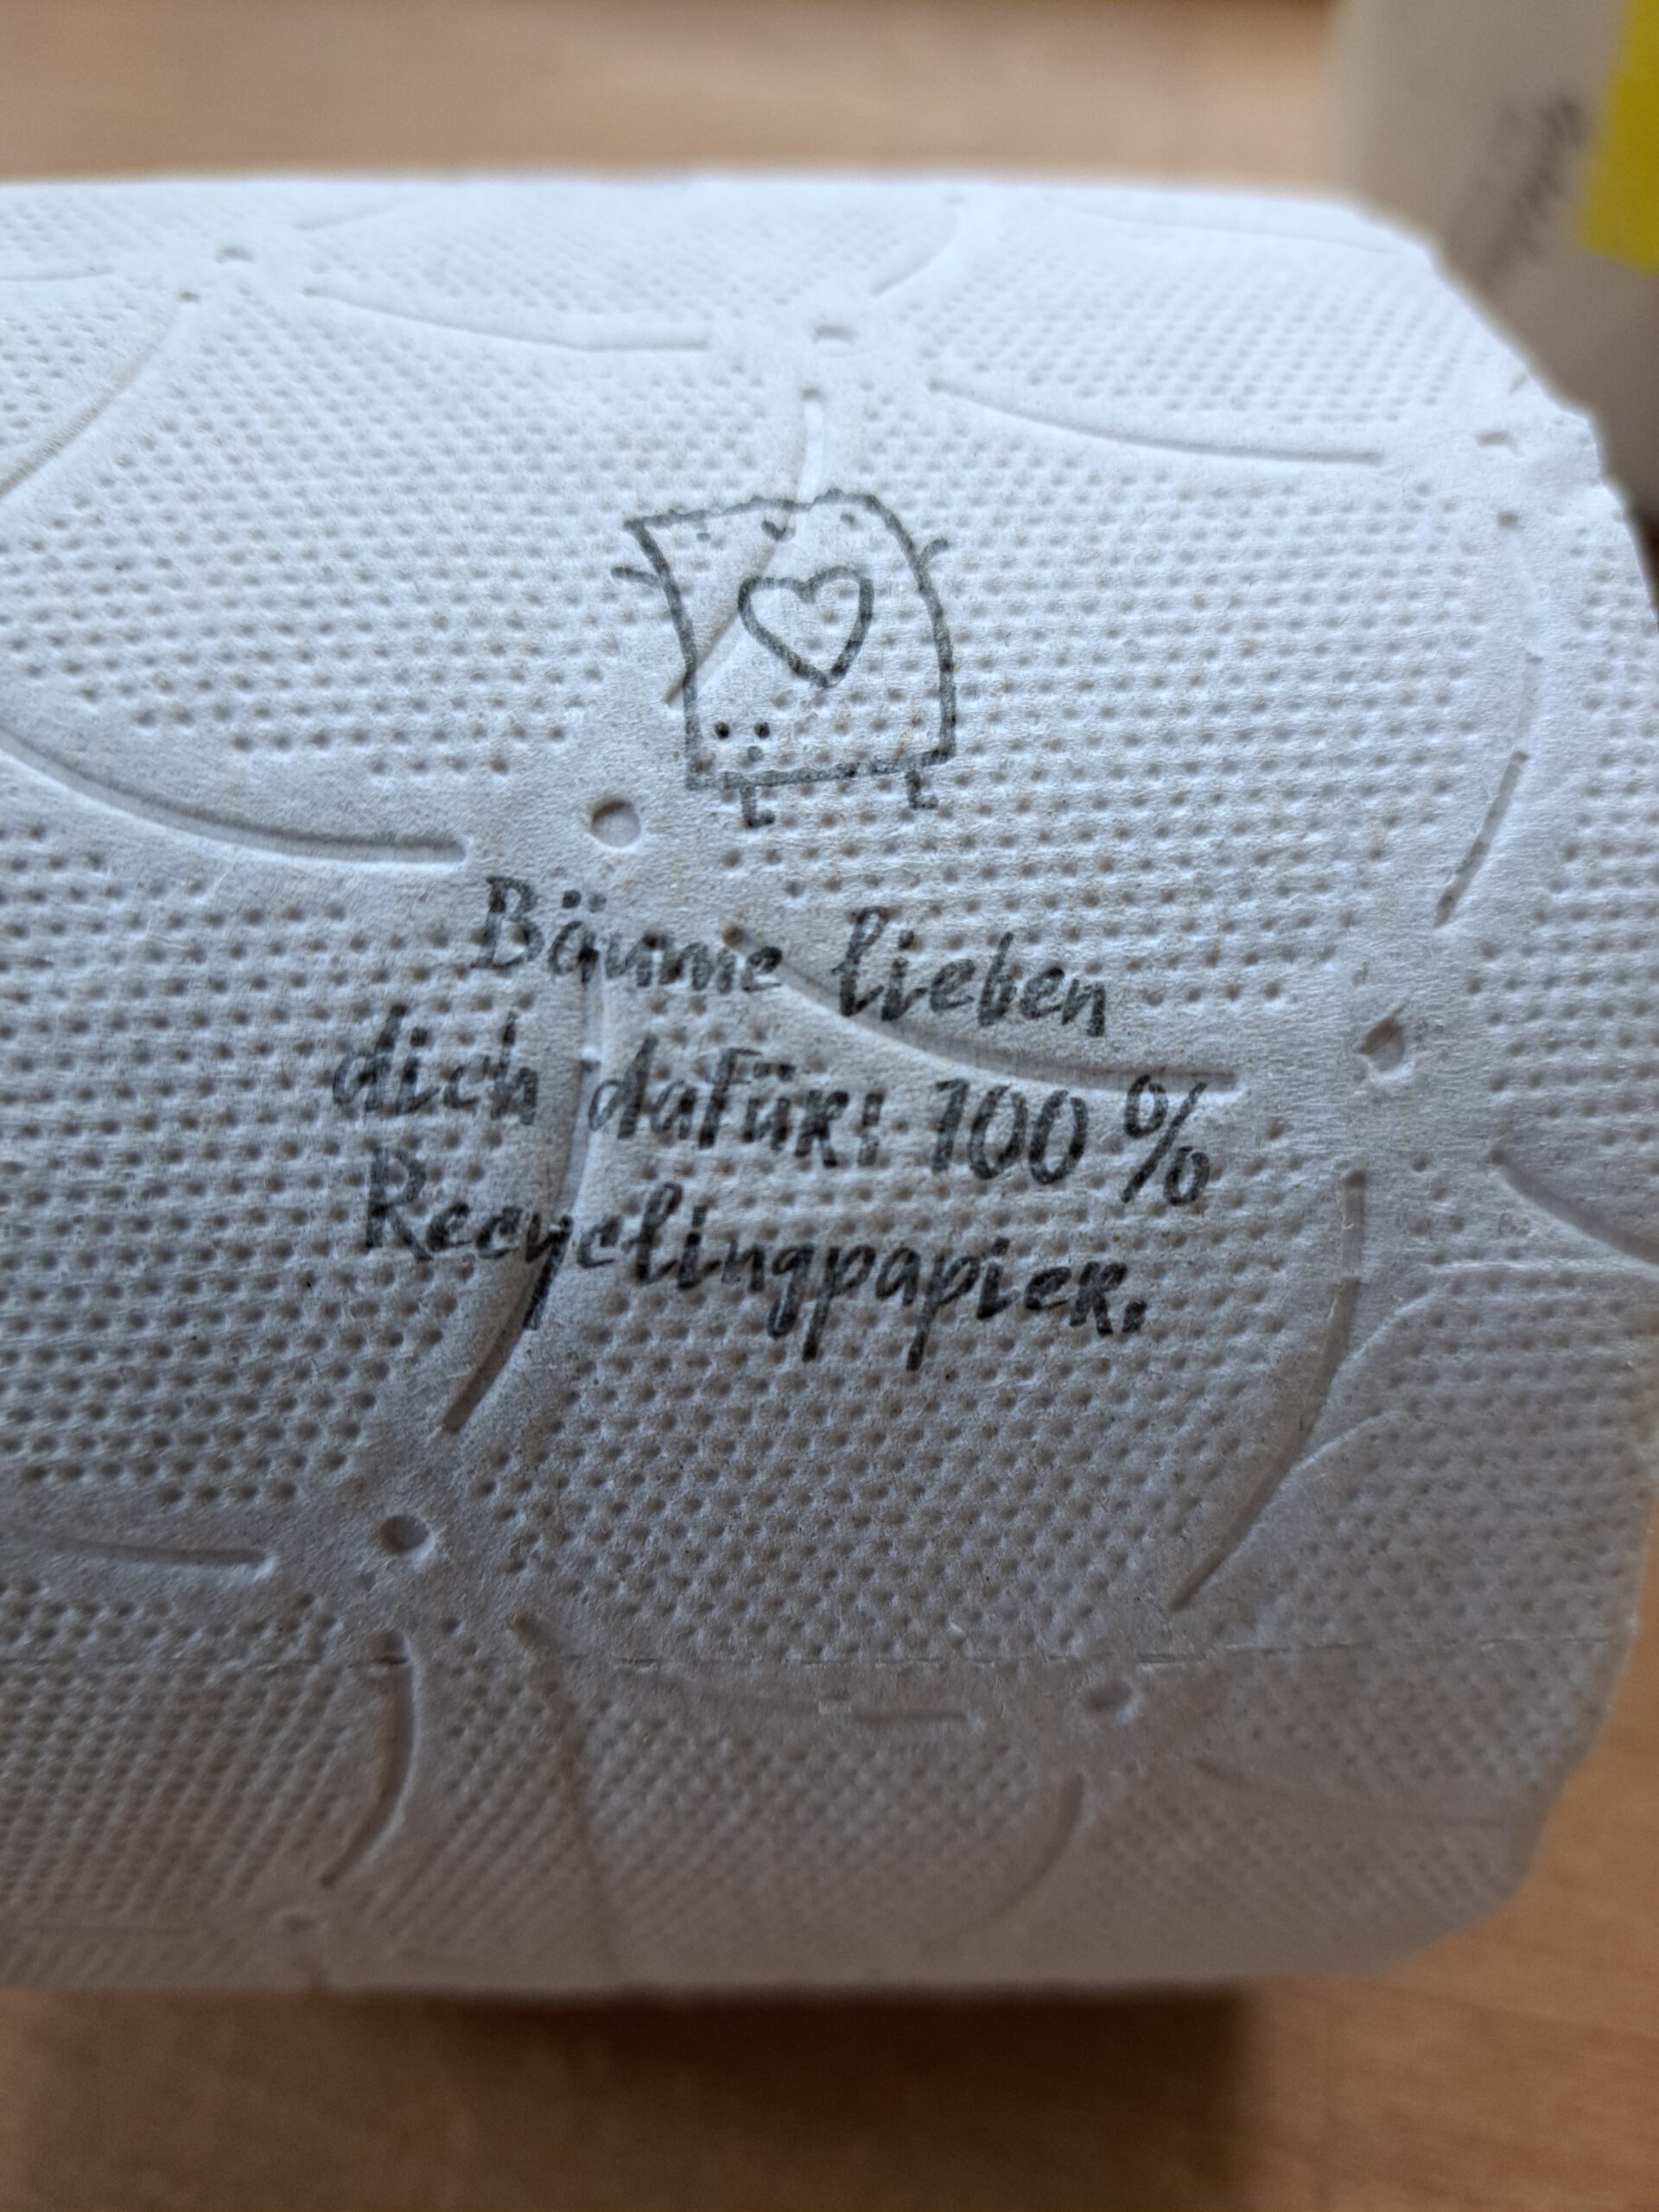 Bäume lieben
dich dafür: 100 %
Recyclingpapier.